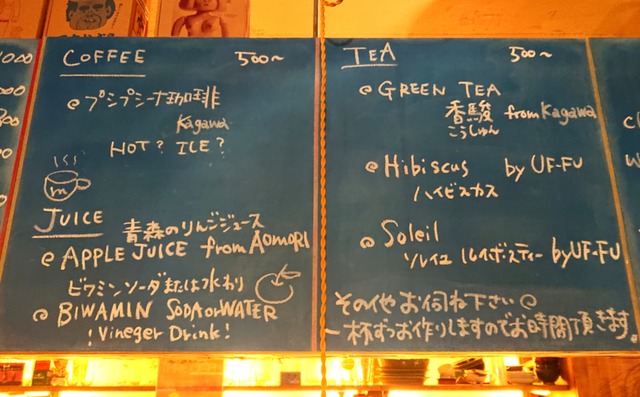 COFFEE 500~
プシプシーナ珈琲
Kagawa
HOT? ICE?
m
JUICE
青森のりんごジュース
APPLE JUICE from AOMORI
ビワミンソーダまたは水わり
BIWAMIN SODA or WATER
! Vineger Drink!
TEA 500~
GREEN TEA
香駿 from Kagawa
こうしゅん
Hibiscus by UF-FU
ハイビスカス
Soleil
ソレイユ ルイボスティー by UF-FU
その他やお伺ね下さい
一杯ずつお作りしますのでお時間頂きます。